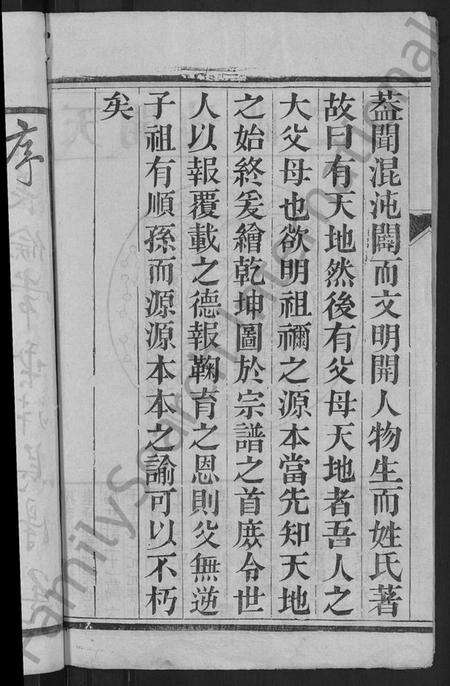 蓋聞混沌闢而文明開人物生而姓氏著
故曰有天地然後有父母天地者吾人之
大父母也欲明祖禰之源本當先知天地
之始終爰繪乾坤圖於宗譜之首庶令世
人以報覆載之德報鞠育之恩則父無逆
子祖有順孫而源源本本之諭可以不朽
矣
序
FamilySearch International